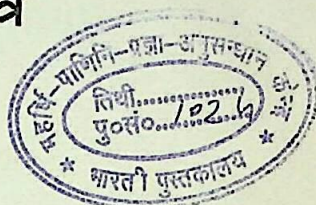 त्र
महर्षि-पाणिनि-प्रज्ञा-अनुसन्धान
तिथी..............
पु०सं०...1026
* भारती पुस्तकालय *